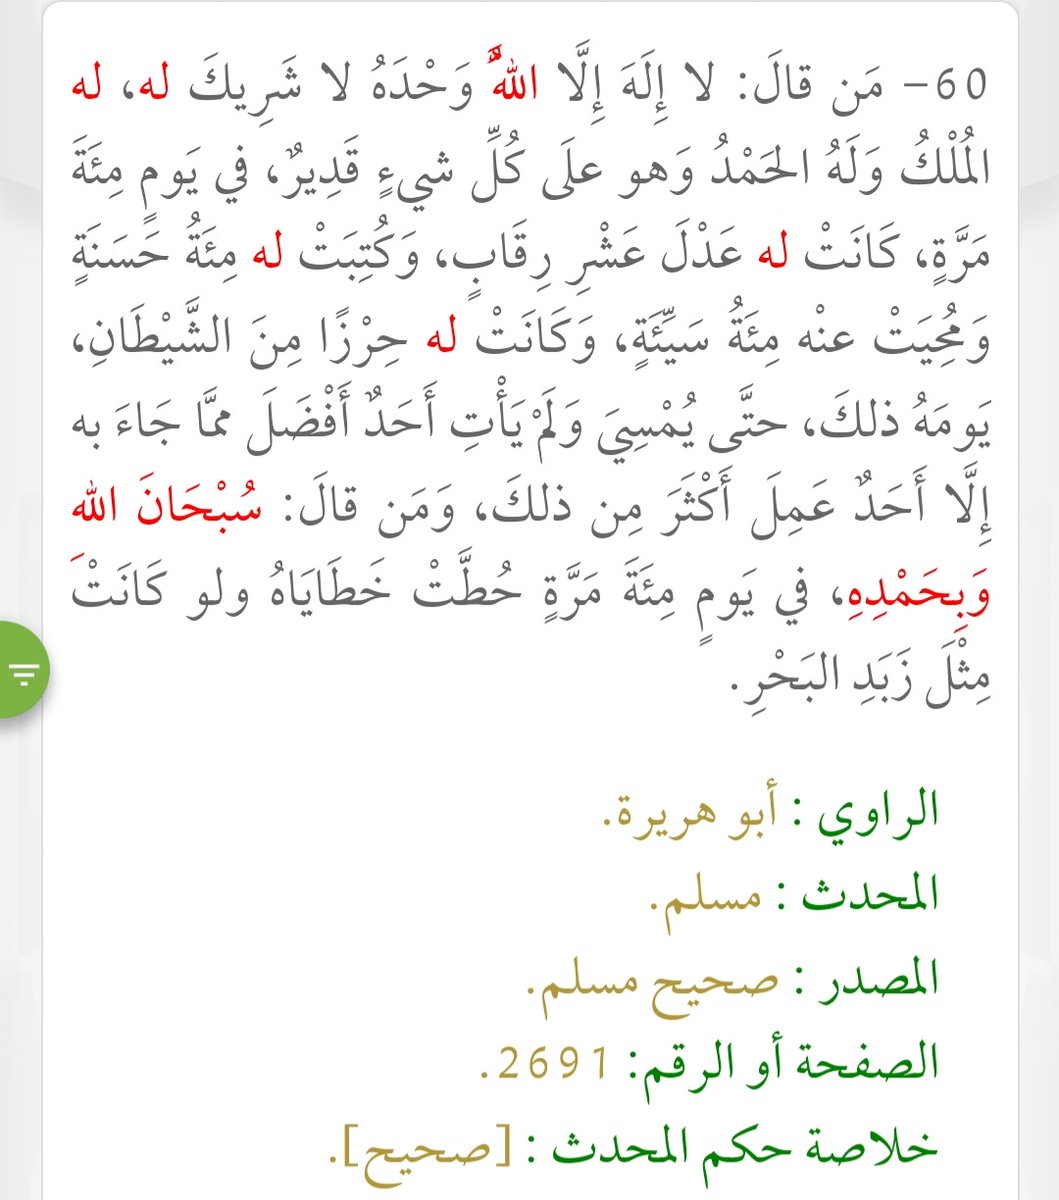 60- مَن قالَ: لا إِلَهَ إِلَّا اللَّهُ وَحْدَهُ لا شَرِيكَ له، له
المُلْكُ وَلَهُ الحَمْدُ وَهو علَى كُلِّ شيءٍ قَدِيرٌ، في يَومٍ مِئَةَ
مَرَّةٍ، كَانَتْ له عَدْلَ عَشْرِ رِقَابٍ، وَكُتِبَتْ له مِئَةُ حَسَنَةٍ
وَمُحِيَتْ عنْه مِئَةُ سَيِّئَةٍ، وَكَانَتْ له حِرْزًا مِنَ الشَّيْطَانِ،
يَومَهُ ذلكَ، حتَّى يُمْسِيَ وَلَمْ يَأْتِ أَحَدٌ أَفْضَلَ ممَّا جَاءَ به
إِلَّا أَحَدٌ عَمِلَ أَكْثَرَ مِن ذلكَ، وَمَن قالَ: سُبْحَانَ اللهِ
وَبِحَمْدِهِ، في يَومٍ مِئَةَ مَرَّةٍ حُطَّتْ خَطَايَاهُ ولو كَانَتْ
مِثْلَ زَبَدِ البَحْرِ.
الراوي : أبو هريرة.
المحدث : مسلم.
المصدر : صحيح مسلم.
الصفحة أو الرقم: 2691.
خلاصة حكم المحدث : [صحيح].